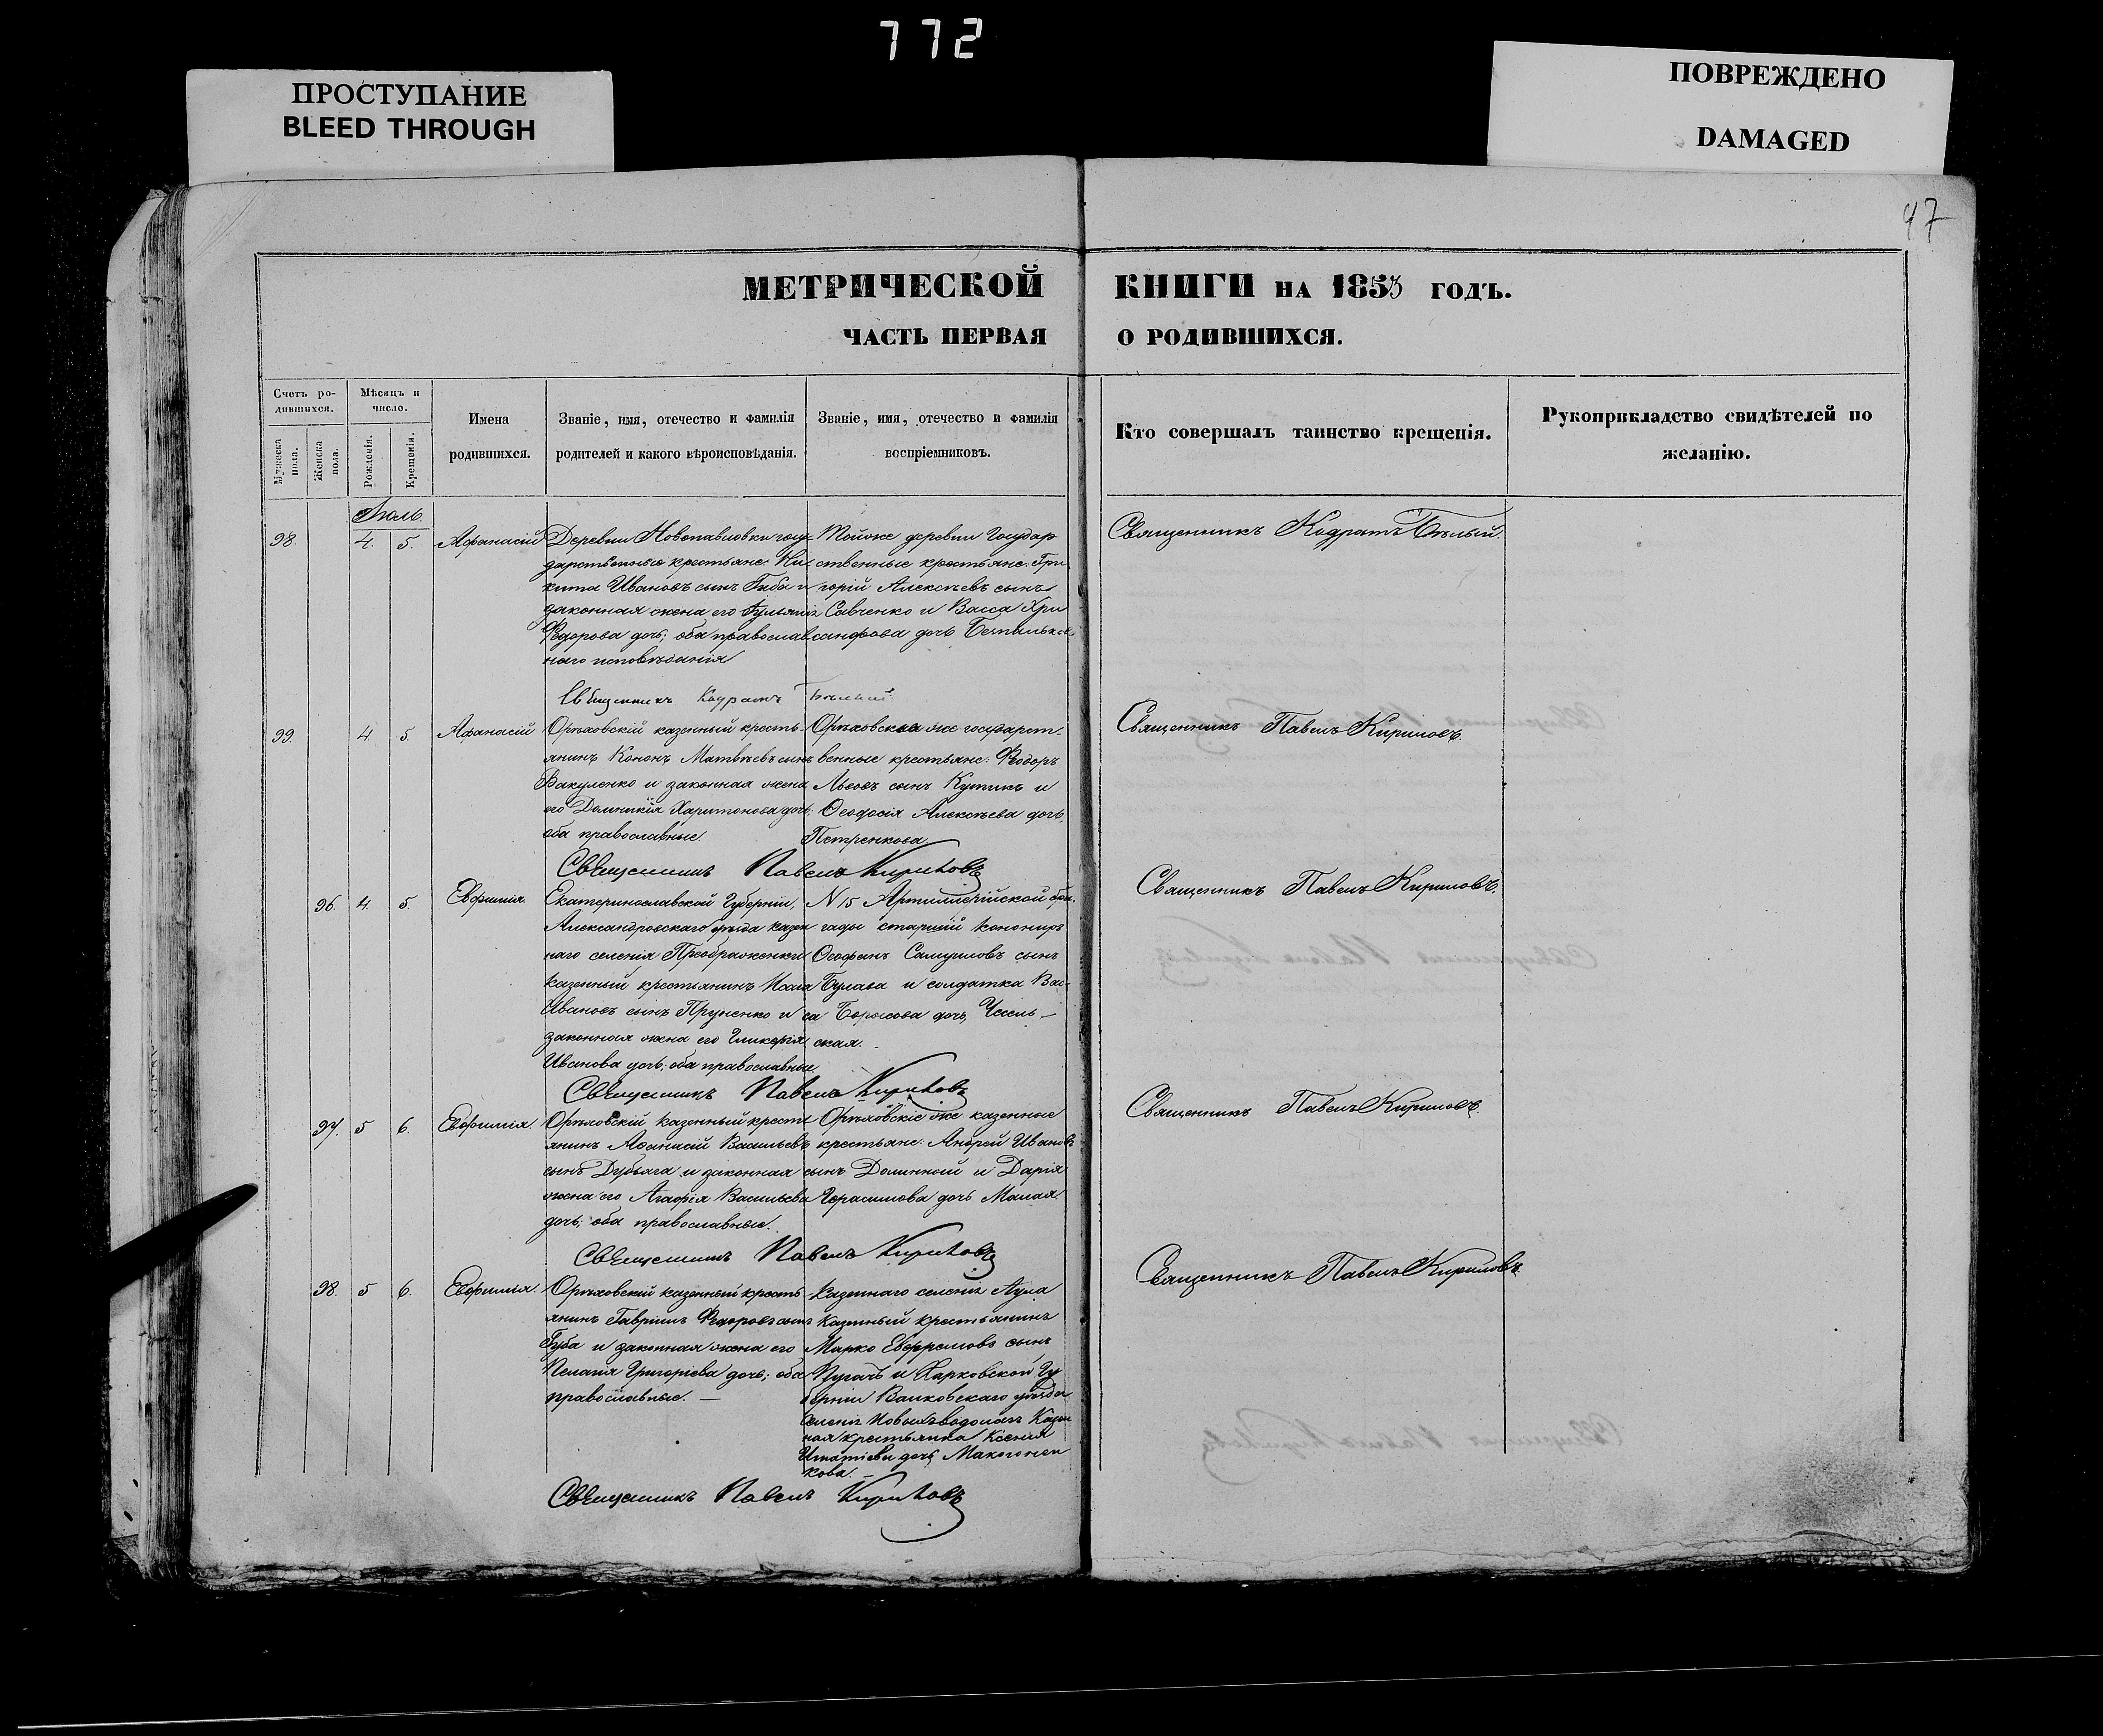 772
ПРОСТУПАНИЕ
BLEED THROUGH
ПОВРЕЖДЕНО
DAMAGED
47
МЕТРИЧЕСКОЙ КНИГИ НА 1853 ГОДЪ.
ЧАСТЬ ПЕРВАЯ О РОДИВШИХСЯ.
Счетъ ро-
дившихся.
Мужеска пола.
Женска пола.
Мѣсяцъ и
число.
Рожденія.
Крещенія.
Имена
родившихся.
Званіе, имя, отечество и фамилія
родителей и какого вѣроисповѣданія.
Званіе, имя, отечество и фамилія
воспріемниковъ.
Кто совершалъ таинство крещенія.
Рукоприкладство свидѣтелей по
желанію.
Іюль.
98. 4. 5. Афанасій
Деревни Новопавловки госу-
дарственные крестьяне: Ни-
кита Ивановъ сынъ Губа и
законная жена его
Федорова дочь; оба православ
наго исповѣданія
Тойже деревни Государ
ственные крестьяне: Гри
горій Алексѣевъ сынъ
Савченко и Васса Хри
санфова дочь
Священникъ Кодратъ Бѣлый.
Священникъ Кодратъ Бѣлый.
99. 4 5. Афанасій
Орѣховскій казенный кресть-
янинъ Кононъ Матвѣевъ сынъ
Вакуленко и законная жена
его Домникія Харитонова дочь,
оба православные.
Орѣховскіе же государст-
венные крестьяне: Феодоръ
Львовъ сынъ Кутикъ и
Ѳеодосія Алексѣева дочь,
Петренкова
Священникъ Павелъ Кириловъ.
Священникъ Павелъ Кириловъ
96. 4. 5. Евфимія
Екатеринославской Губерніи,
Александровскаго уѣзда казен
наго селенія Преображенки
казенный крестьянинъ
Ивановъ сынъ Пруненко и
законная жена его Гликерія
Иванова дочь; оба православные.
N 15 Артиллерійской бри-
гады старшій канониръ
Ѳеофанъ Самуиловъ сынъ
Булава и солдатка Вас-
са Борисова дочь,
ская.
Священникъ Павелъ Кириловъ.
Священникъ Павелъ Кириловъ
97. 5 6. Евфимія
Орѣховскій казенный кресть
янинъ Аѳанасій Васильевъ
сынъ Дубяга и законная
жена его Агафія Васильева
дочь; оба православные.
Орѣховскіе же казенные
крестьяне: Андрей Ивановъ
сынъ Долинной и Дарія
Герасимова дочь Малая.
Священникъ Павелъ Кириловъ.
Священникъ Павелъ Кириловъ
98. 5 6. Евфимія.
Орѣховскій казенный кресть
янинъ Гавріилъ Федоровъ сынъ
Губа и законная жена его
Пелагія Григоріева дочь; оба
православные. —
Казеннаго селенія Аула
казенный крестьянинъ
Марко Евфремовъ сынъ
Пугачъ и Харковской Гу
берніи Валковскаго уѣзда
селенія Новыхъ водолагъ Казен
ная крестьянка Ксенія
Игнатіева дочь Макогонен
кова. —
Священникъ Павелъ Кириловъ.
Священникъ Павелъ Кириловъ